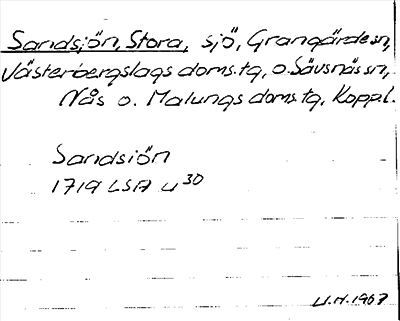 Sandsjön, Stora, sjö, Grangärde sn,
Västerbergslags doms.tg, o. Sävsnäs sn,
Nås o. Malungs doms.tg, Kopp.l.
Sandsiön
1719 LSA U30
U.H. 1967